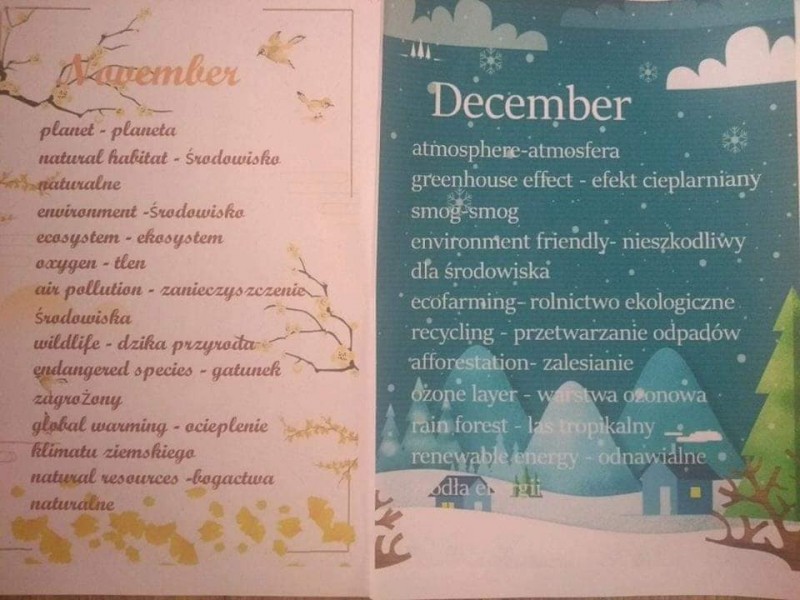 November
planet - planeta
natural habitat - środowisko
naturalne
environment -środowisko
ecosystem - ekosystem
oxygen - tlen
air pollution - zanieczyszczenie
środowiska
wildlife - dzika przyroda
endangered species - gatunek
zagrożony
global warming - ocieplenie
klimatu ziemskiego
natural resources -bogactwa
naturalne
December
atmosphere-atmosfera
greenhouse effect - efekt cieplarniany
smog-smog
environment friendly- nieszkodliwy
dla środowiska
ecofarming- rolnictwo ekologiczne
recycling - przetwarzanie odpadów
afforestation- zalesianie
ozone layer - warstwa ozonowa
rain forest - las tropikalny
renewable energy - odnawialne